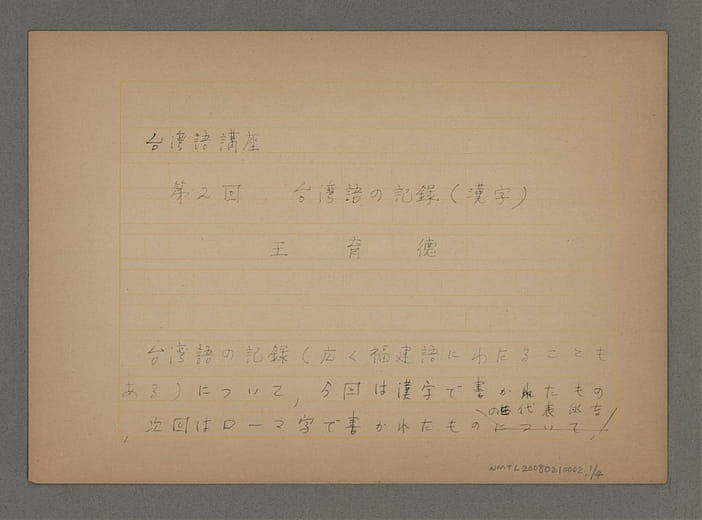 台湾語講座
第2回 台湾語の記録(漢字)
王 育 徳
台湾語の記録(広く福建語にわたることも
ある)について,今回は漢字で書かれたもの
の由代表的な
,次回はローマ字で書かれたものについて,
NMTL20080210002.1/4